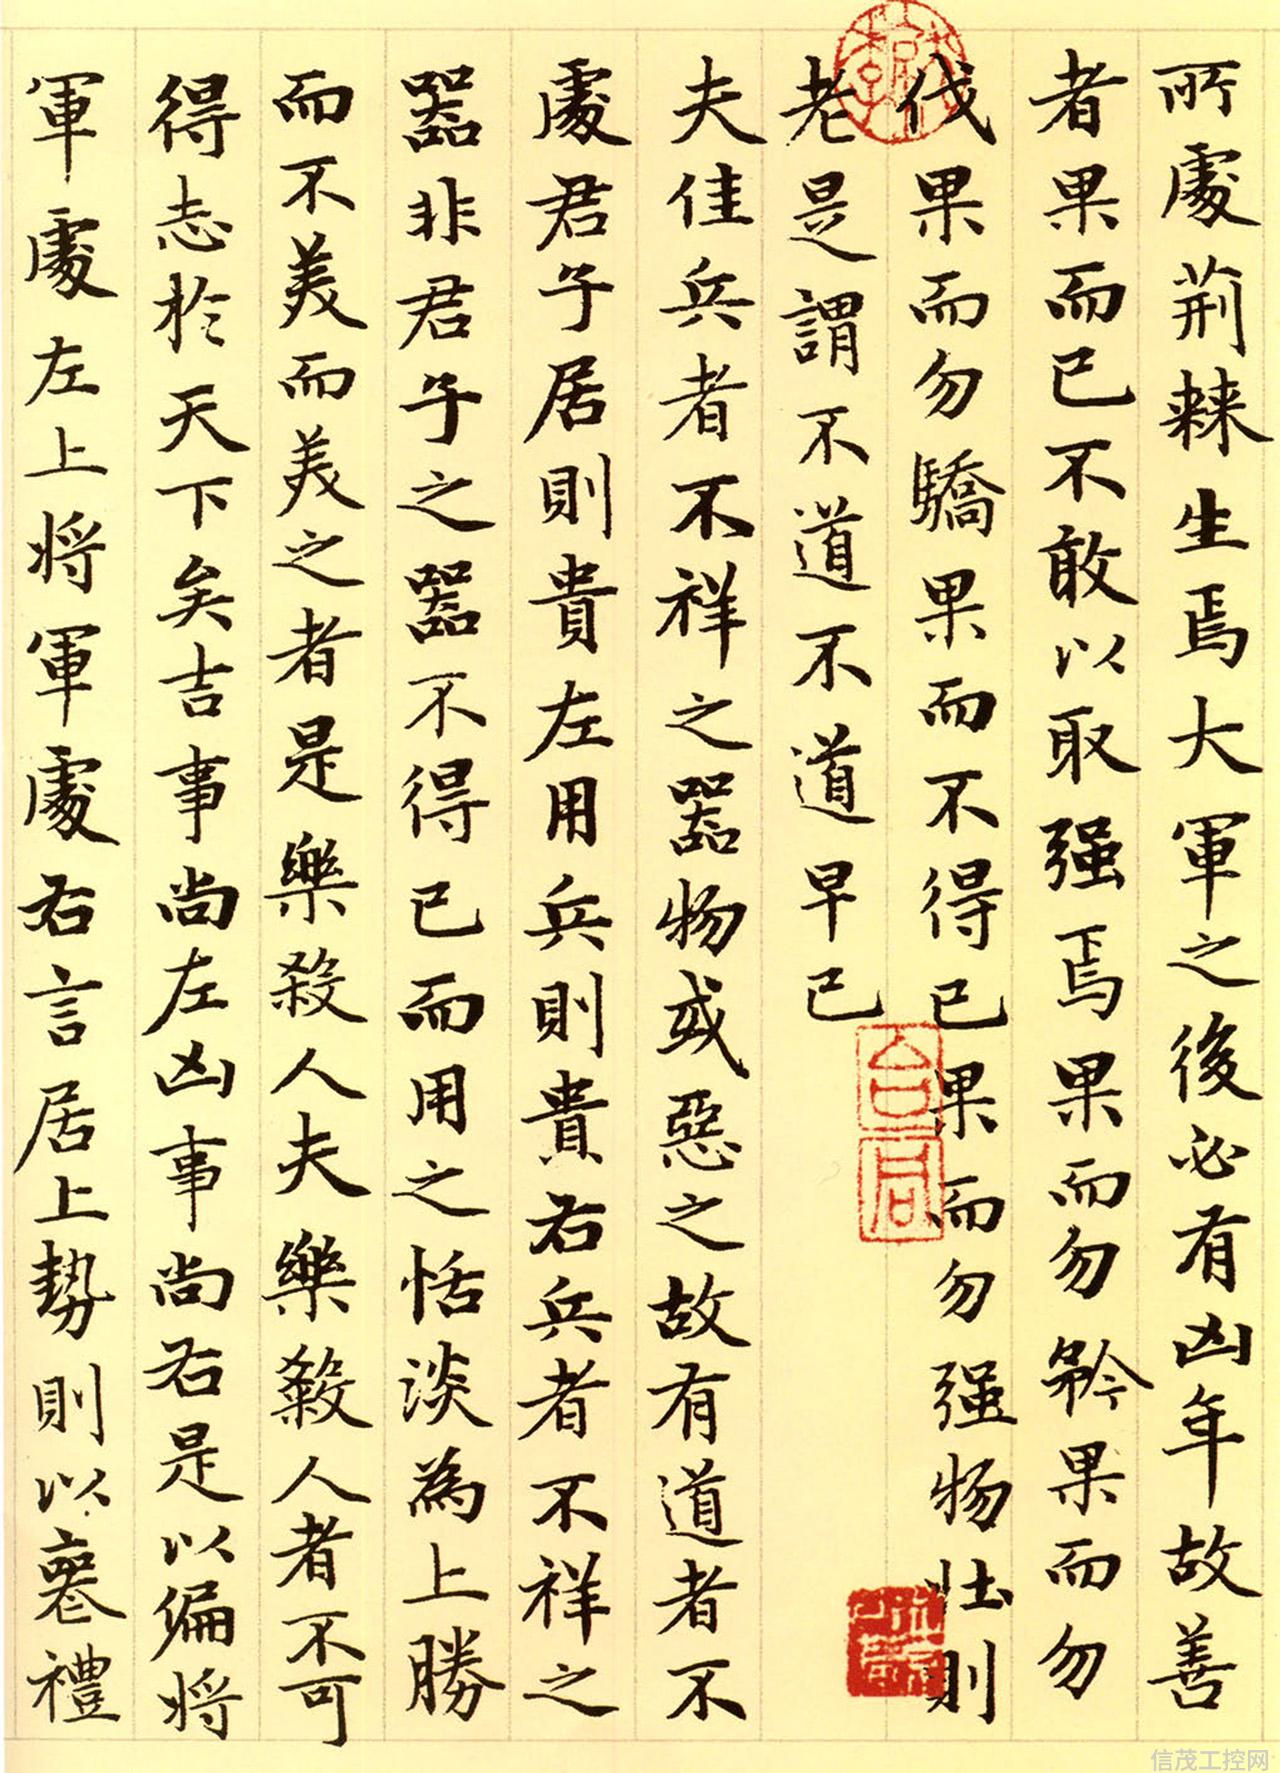 所處荆棘生焉大軍之後必有凶年故善
者果而已不敢以取强焉果而勿矜果而勿
伐果而勿驕果而不得已果而勿强物壮則
老是謂不道不道早已
夫佳兵者不祥之器物或惡之故有道者不
處君子居則貴左用兵則貴右兵者不祥之
器非君子之器不得已而用之恬淡為上勝
而不美而美之者是樂殺人夫樂殺人者不可
得志於天下矣吉事尚左凶事尚右是以偏将
軍處左上将軍處右言居上勢則以喪禮
信茂工控网